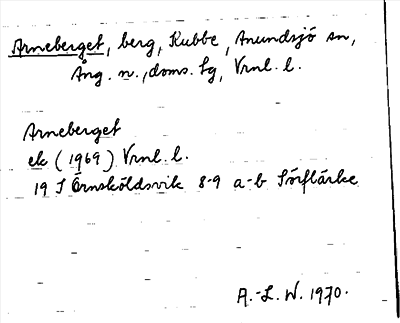 Arneberget, berg, Kubbe, Anundsjö sn,
Ång. n., doms. lg, Vrnl. l.
Arneberget
ek (1969) Vrnl. l.
19 I Örnsköldsvik 8-9 a-b Sörflärke
A.-L. W. 1970.